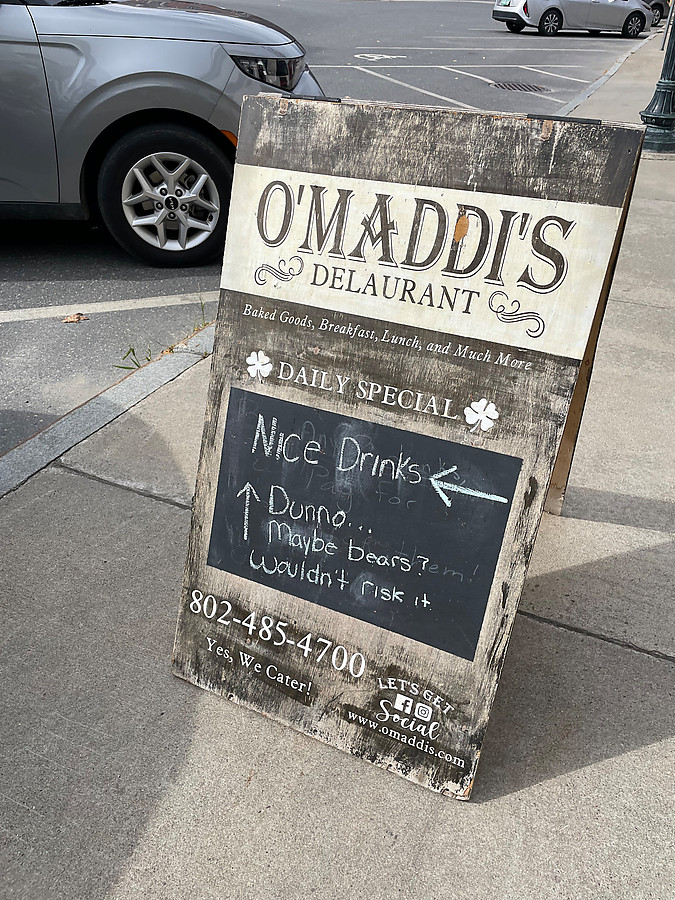 O'MADDI'S
DELAURANT
Baked Goods, Breakfast, Lunch, and Much More
DAILY SPECIAL
Nice Drinks ←
↑ Dunno...
Maybe bears?
Wouldn't risk it.
802-485-4700
Yes, We Cater!
LET'S GET
Social
www.omaddis.com